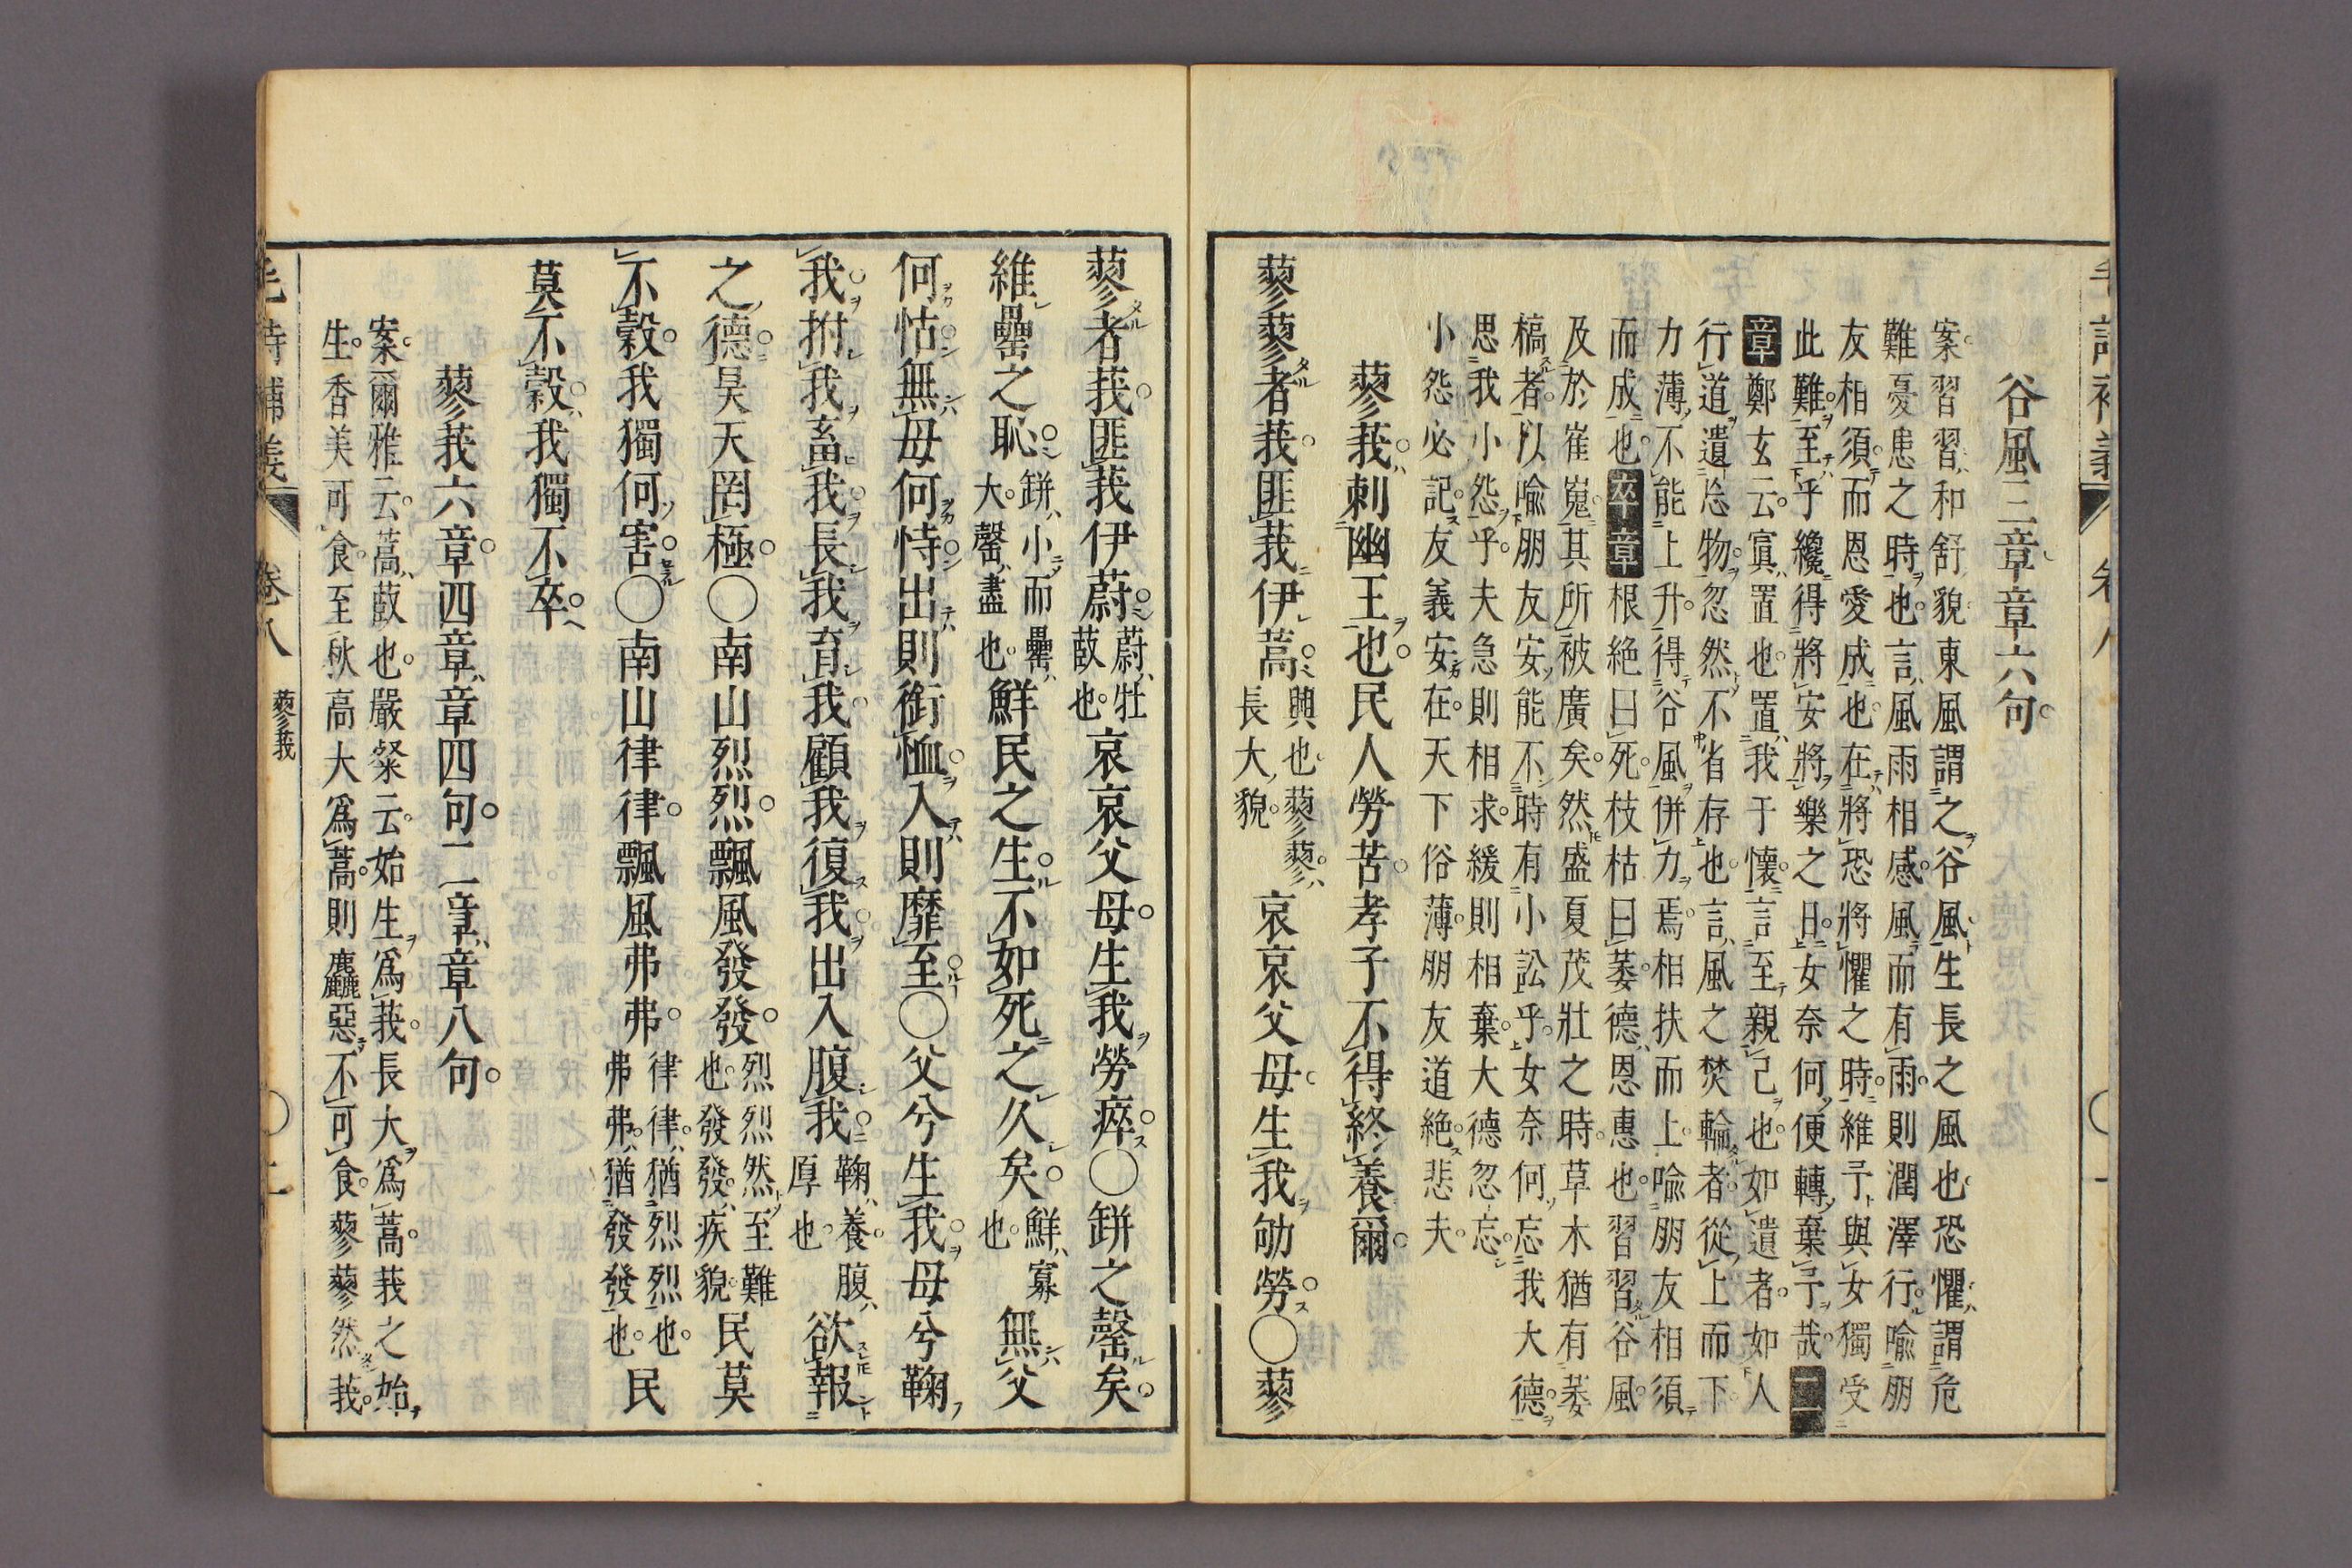 谷風三章章六句
案習習和舒貌東風謂之谷風生長之風也恐懼謂危
難憂患之時也言風雨相感風而有雨則潤澤行喩朋
友相須而恩愛成也在將恐將懼之時維予與女獨受
此難至乎纔得將安將樂之日女奈何便轉棄予哉二
章鄭玄云寘置也置我于懷言至親己也如遺者如人
行道遺忘物忽然不省存也言風之焚輪者從上而下
力薄不能上升得谷風併力焉相扶而上喩朋友相須
而成也卒章根絶曰死枝枯曰萎德恩惠也習習谷風
及於崔嵬其所被廣矣然盛夏茂壯之時草木猶有萎
槁者以喩朋友安能不時有小訟乎女奈何忘我大德
思我小怨乎夫急則相求緩則相棄大德忽忘
小怨必記友義安在天下俗薄朋友道絶悲夫
蓼莪刺幽王也民人勞苦孝子不得終養爾
蓼蓼者莪匪莪伊蒿興也蓼蓼長大貌哀哀父母生我劬勞〇蓼
蓼者莪匪莪伊蔚蔚牡菣也哀哀父母生我勞瘁〇缾之罄矣
維罍之恥缾小而罍大罄盡也鮮民之生不如死之久矣鮮寡也無父
何怙無母何恃出則銜恤入則靡至〇父兮生我母兮鞠
我拊我畜我長我育我顧我復我出入腹我鞠養腹厚也欲報
之德昊天罔極〇南山烈烈飄風發發烈烈然至難也發發疾貌民莫
不穀我獨何害〇南山律律飄風弗弗律律猶烈烈也弗弗猶發發也民
莫不穀我獨不卒
蓼莪六章四章章四句二章章八句
案爾雅云蒿菣也嚴粲云始生爲莪長大爲蒿莪之始
生香美可食至秋高大爲蒿則麤惡不可食蓼蓼然莪
毛詩補義 卷八 蓼莪